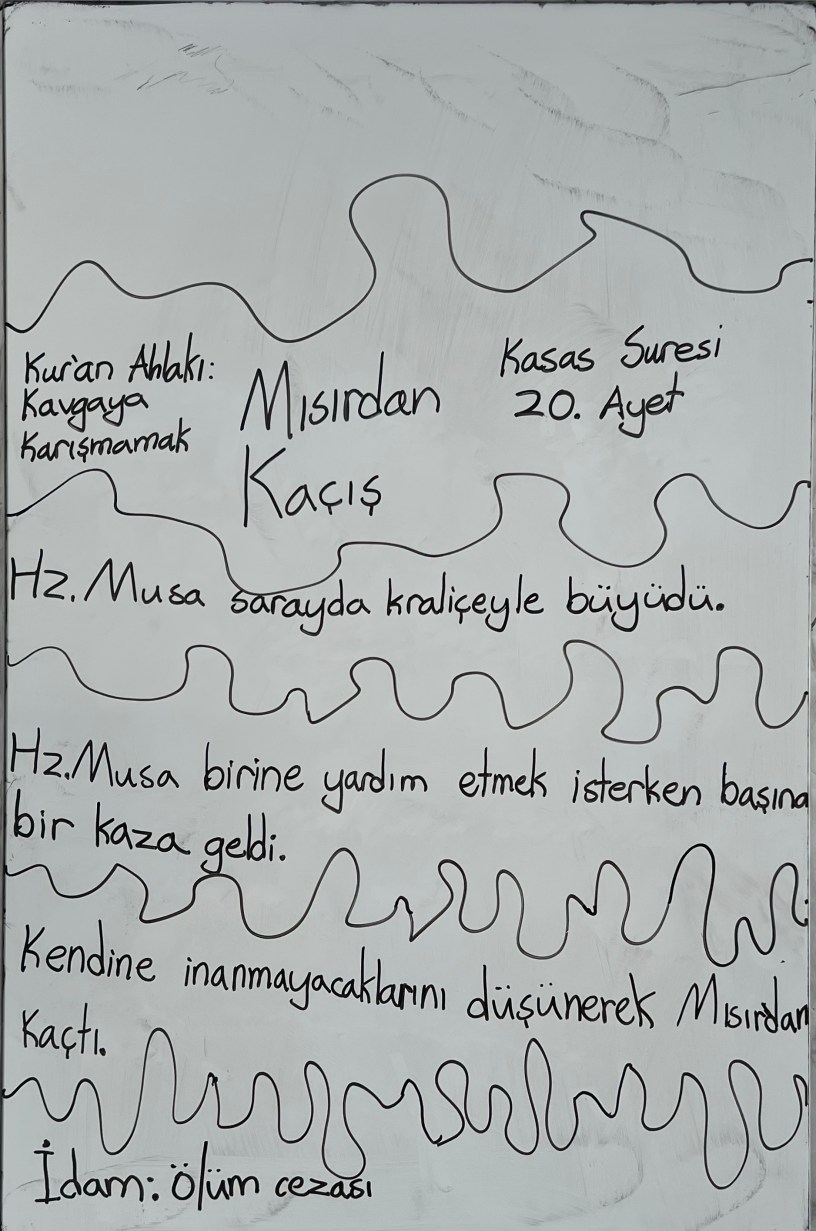 Kur'an Ahlakı:
Kavgaya
Karışmamak
Mısırdan
Kaçış
Kasas Suresi
20. Ayet
Hz. Musa sarayda kraliçeyle büyüdü.
Hz. Musa birine yardım etmek isterken başına
bir kaza geldi.
Kendine inanmayacaklarını düşünerek Mısırdan
Kaçtı.
İdam: ölüm cezası